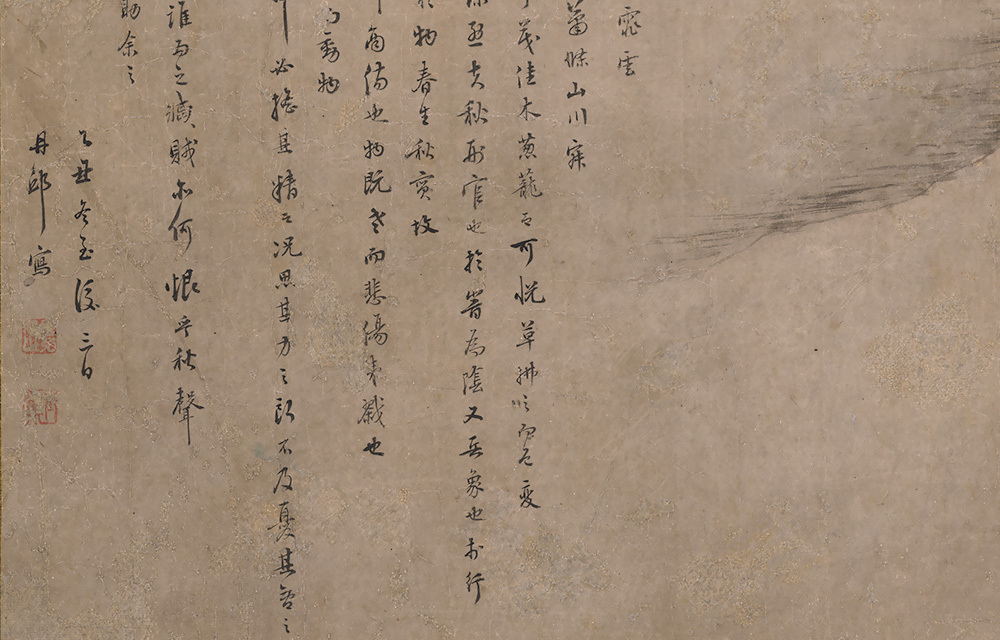 霏雲
蕭條山川寂
茂佳木葱蘢而可悅草拂之而色變
烈夫秋刑官也於時為陰又兵象也於行
於物春生秋實故
商傷也物既老而悲傷夷戮也
為動物
中必搖其精而况思其力之所不及憂其智之
誰為之戕賊亦何恨乎秋聲
助余之
乙丑冬至後三日
丹邱寫